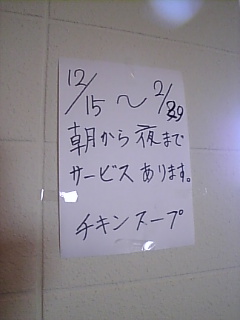 12/15～2/29
朝から夜まで
サービスあります。
チキンスープ